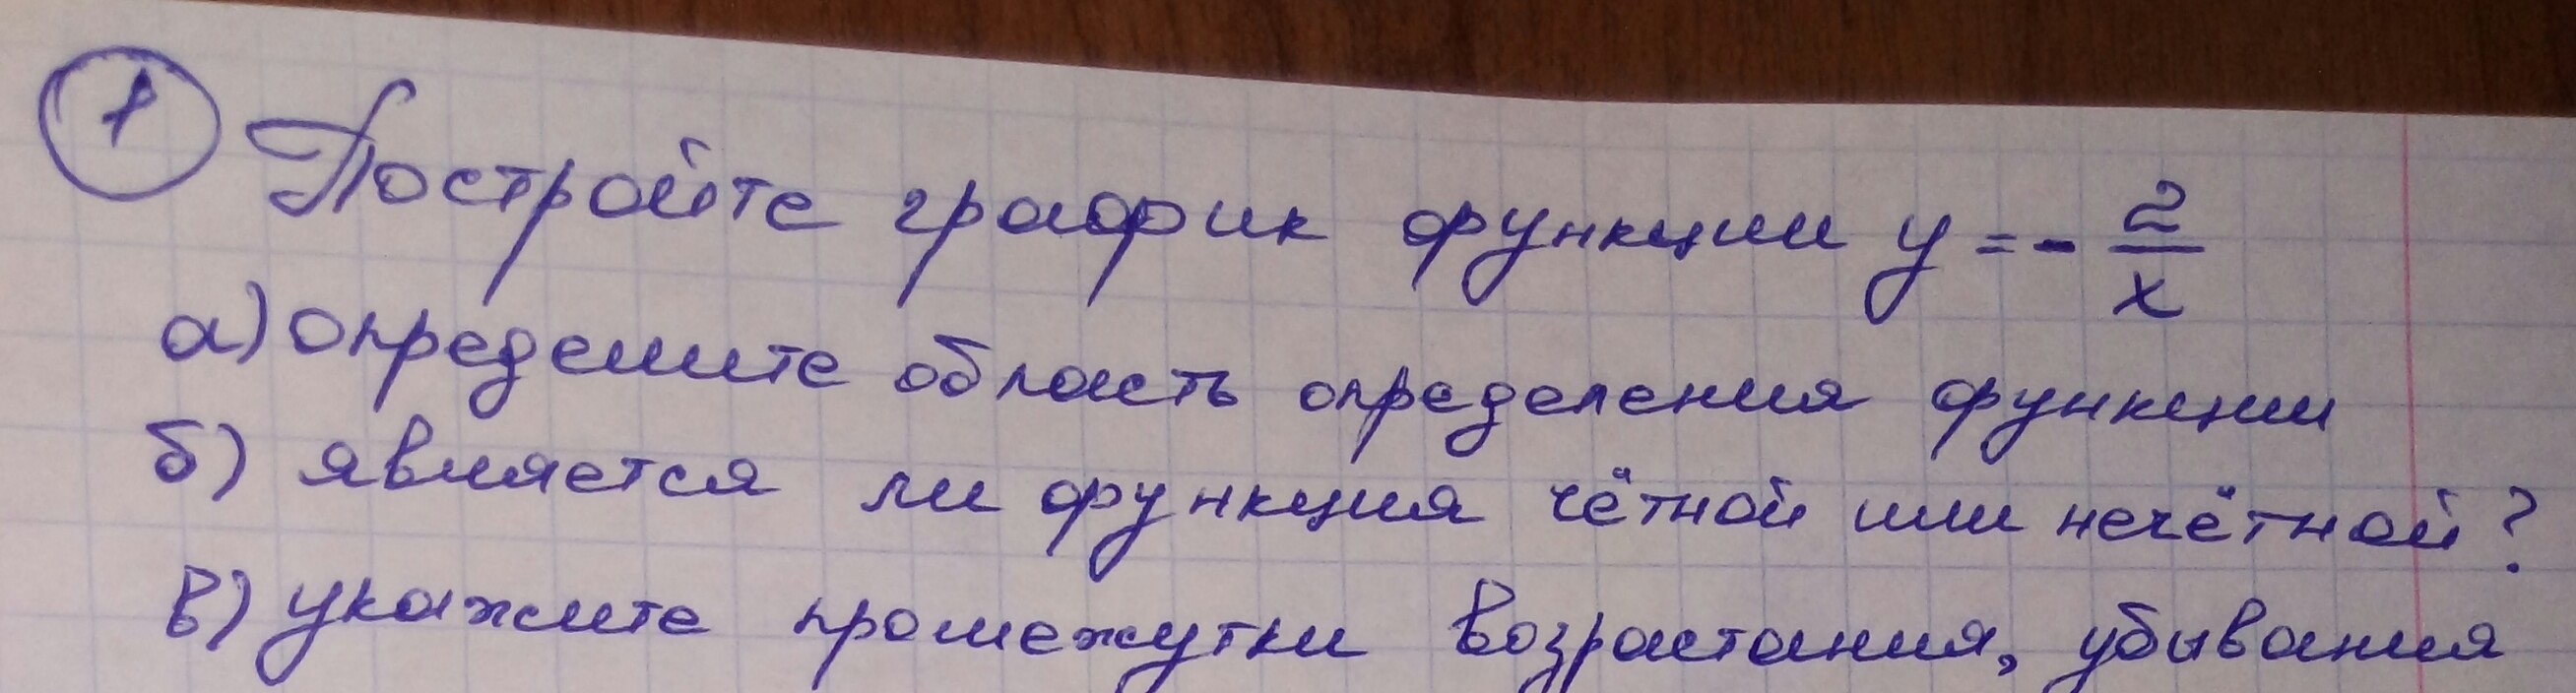 1 Постройте график функции y = - 2/x
а) определите область определения функции
б) является ли функция чётной или нечётной?
в) укажите промежутки возрастания, убывания